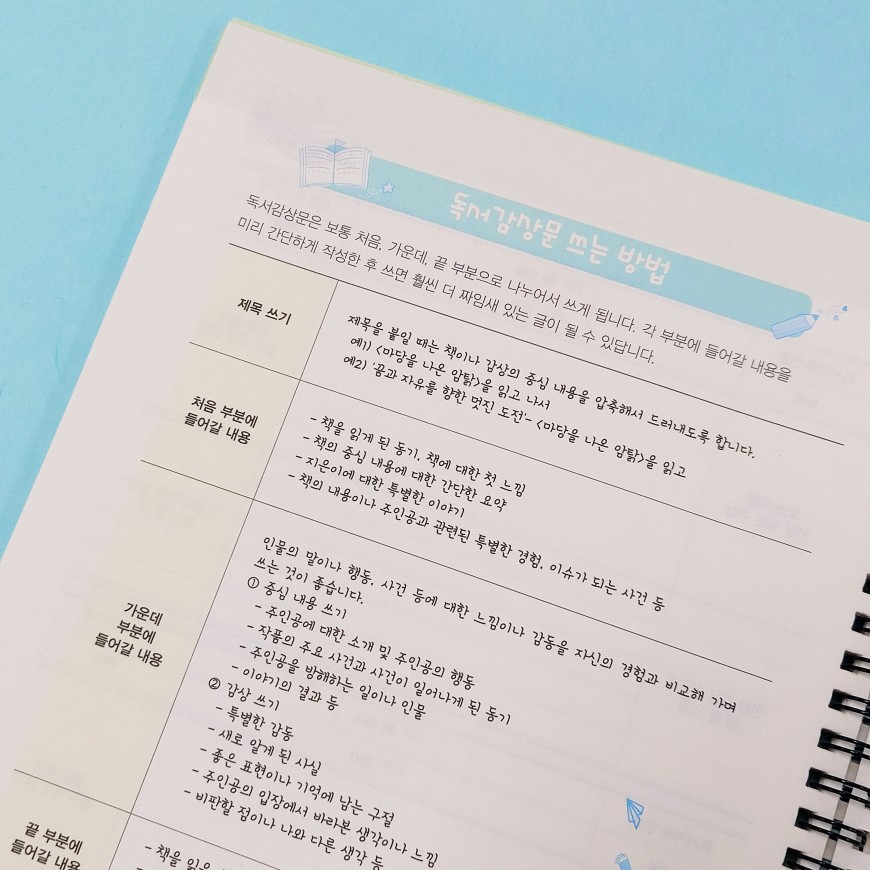 독서감상문 쓰는 방법
독서감상문은 보통 처음, 가운데, 끝 부분으로 나누어서 쓰게 됩니다. 각 부분에 들어갈 내용을
미리 간단하게 작성한 후 쓰면 훨씬 더 짜임새 있는 글이 될 수 있답니다.
제목 쓰기
제목을 붙일 때는 책이나 감상의 중심 내용을 압축해서 드러내도록 합니다.
예1) <마당을 나온 암탉>을 읽고 나서
예2) '꿈과 자유를 향한 멋진 도전'- <마당을 나온 암탉>을 읽고
처음 부분에
들어갈 내용
- 책을 읽게 된 동기, 책에 대한 첫 느낌
- 책의 중심 내용에 대한 간단한 요약
- 지은이에 대한 특별한 이야기
- 책의 내용이나 주인공과 관련된 특별한 경험, 이슈가 되는 사건 등
가운데
부분에
들어갈 내용
인물의 말이나 행동, 사건 등에 대한 느낌이나 감동을 자신의 경험과 비교해 가며
쓰는 것이 좋습니다.
① 중심 내용 쓰기
- 주인공에 대한 소개 및 주인공의 행동
- 작품의 주요 사건과 사건이 일어나게 된 동기
- 주인공을 방해하는 일이나 인물
- 이야기의 결과 등
② 감상 쓰기
- 특별한 감동
- 새로 알게 된 사실
- 좋은 표현이나 기억에 남는 구절
- 주인공의 입장에서 바라본 생각이나 느낌
- 비판할 점이나 나와 다른 생각 등
끝 부분에
들어갈 내용
- 책을 읽은